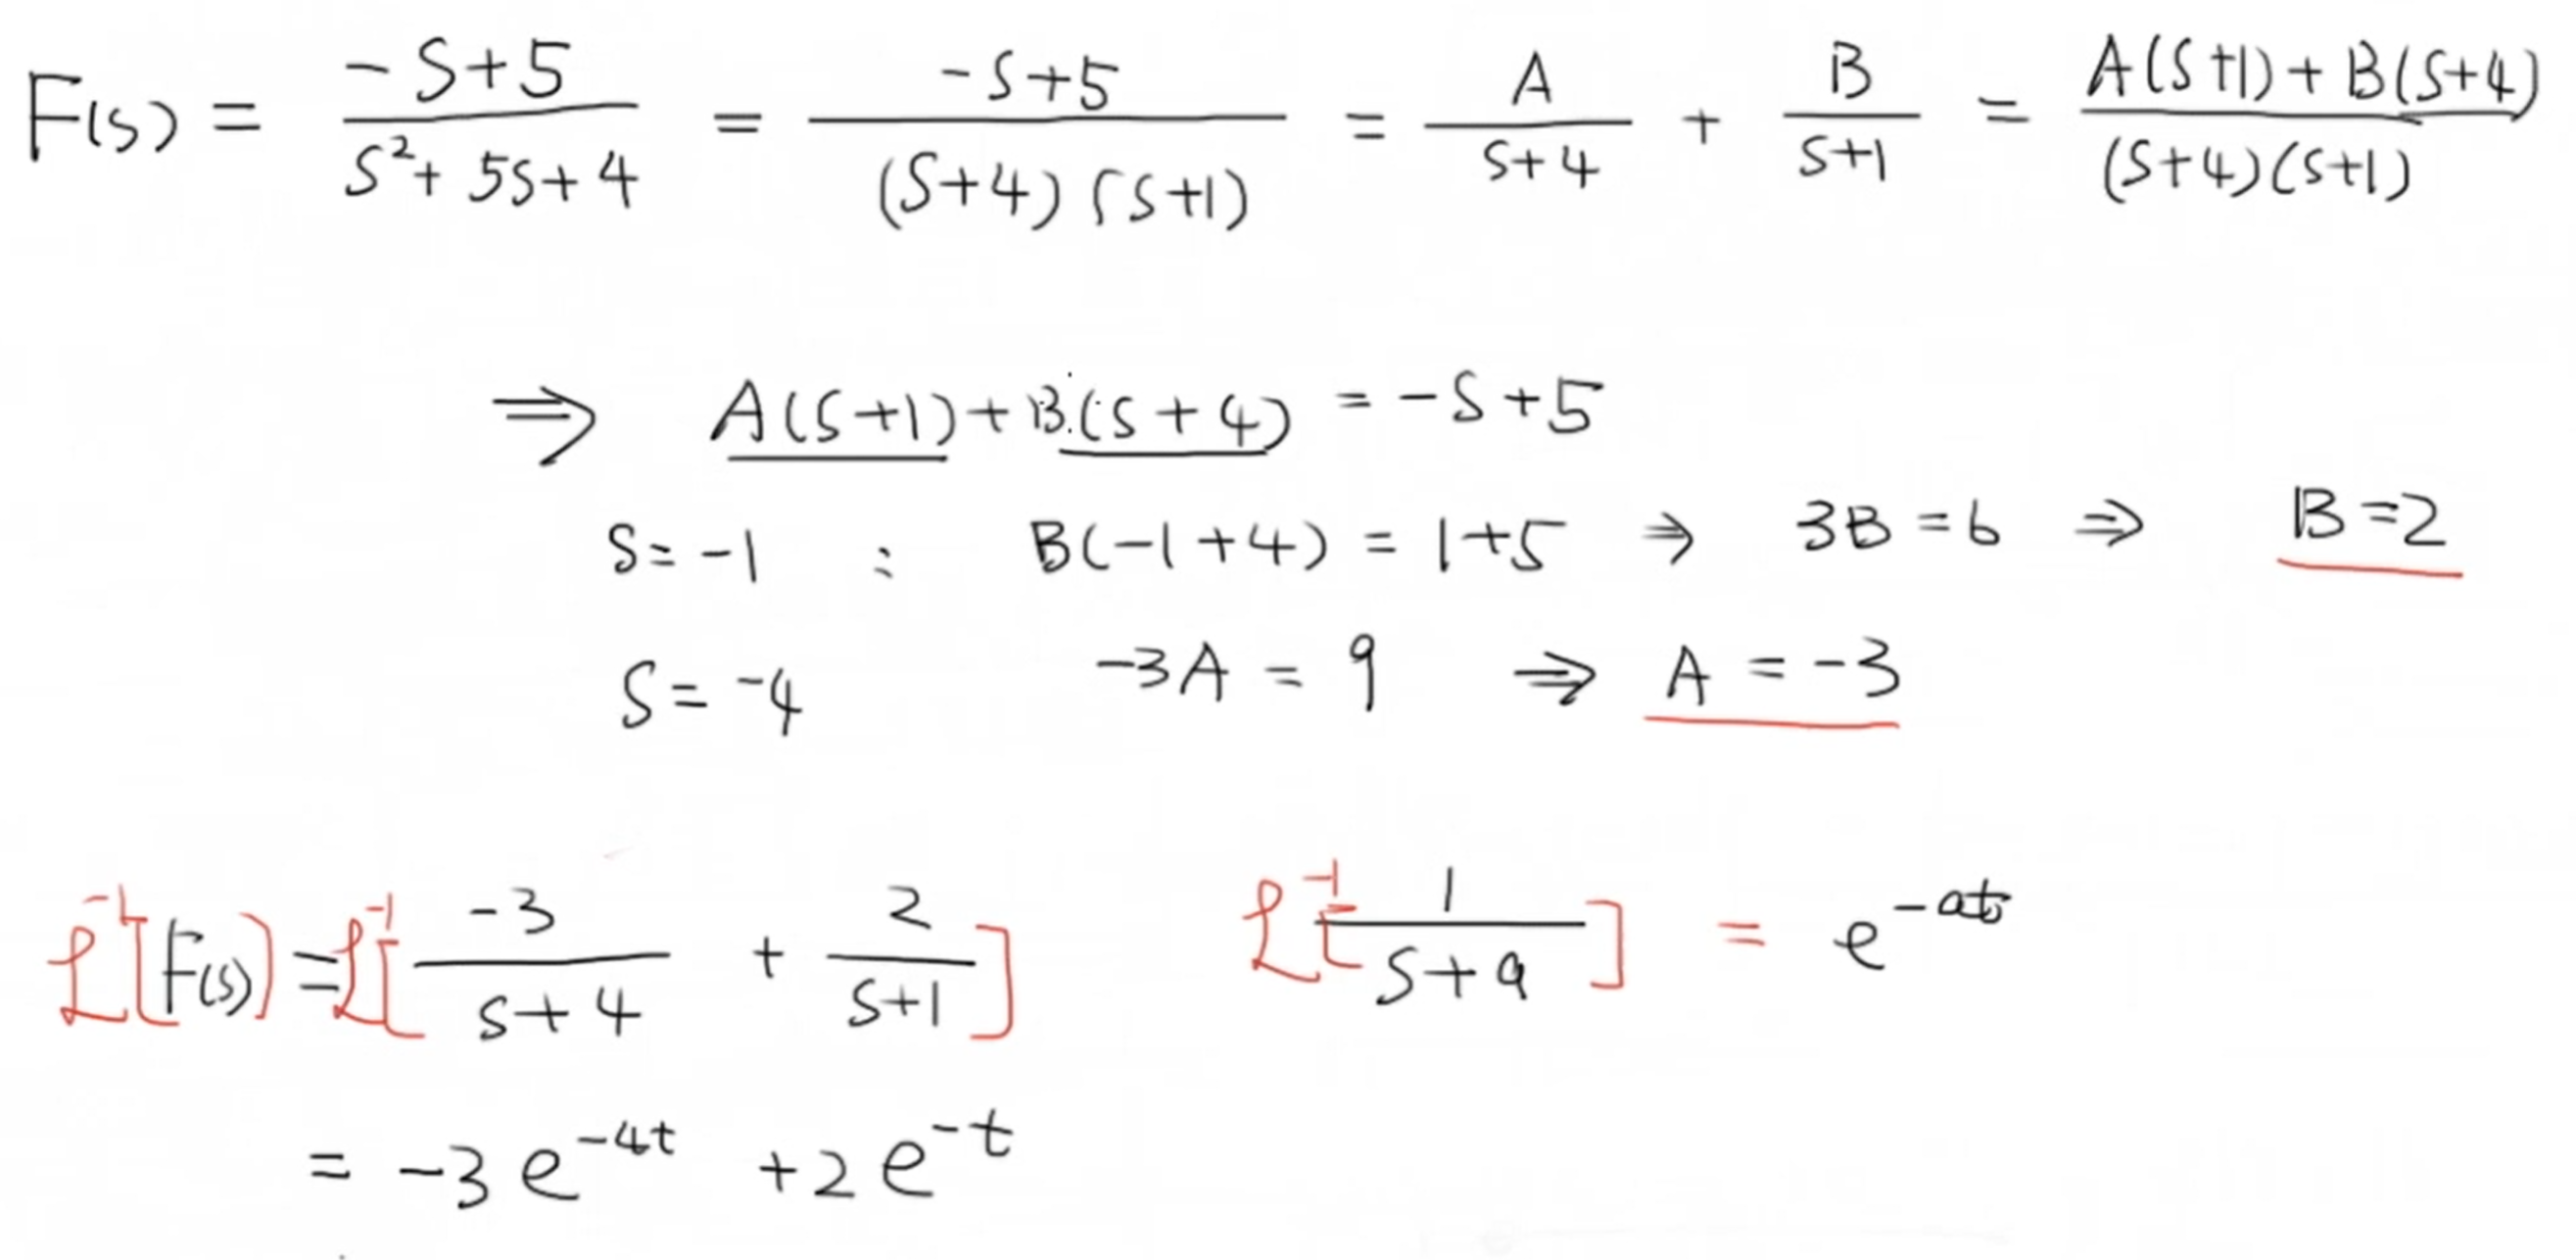 F(s) = \frac{-s+5}{s^2+5s+4} = \frac{-s+5}{(s+4)(s+1)} = \frac{A}{s+4} + \frac{B}{s+1} = \frac{A(s+1)+B(s+4)}{(s+4)(s+1)}
⇒ A(s+1)+B(s+4) = -s+5
s=-1 : B(-1+4) = 1+5 ⇒ 3B=6 ⇒ B=2
s=-4 -3A = 9 ⇒ A = -3
ℒ^{-1}[F(s)] = ℒ^{-1}[\frac{-3}{s+4} + \frac{2}{s+1}] ℒ^{-1}[\frac{1}{s+a}] = e^{-at}
= -3e^{-4t} +2e^{-t}